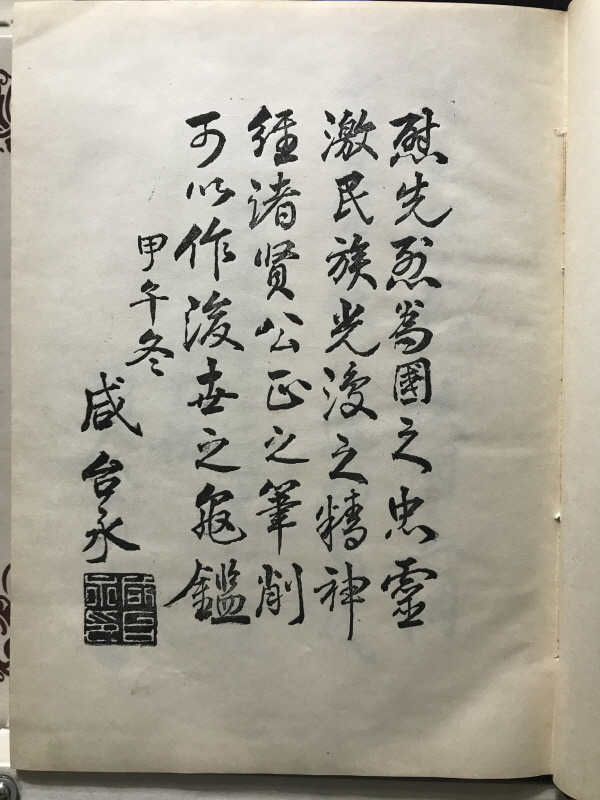 慰先烈爲國之忠靈
激民族光復之精神
經諸賢公正之筆削
可以作後世之龜鑑
甲午冬
咸台永